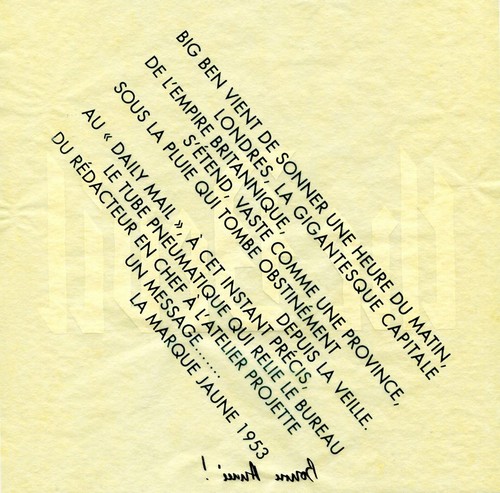 BIG BEN VIENT DE SONNER UNE HEURE DU MATIN,
LONDRES, LA GIGANTESQUE CAPITALE
DE L'EMPIRE BRITANNIQUE,
S'ÉTEND, VASTE COMME UNE PROVINCE,
SOUS LA PLUIE QUI TOMBE OBSTINÉMENT
DEPUIS LA VEILLE.
AU « DAILY MAIL », À CET INSTANT PRÉCIS,
LE TUBE PNEUMATIQUE QUI RELIE LE BUREAU
DU RÉDACTEUR EN CHEF À L'ATELIER PROJETTE
UN MESSAGE.......
LA MARQUE JAUNE 1953
Bonne Année !